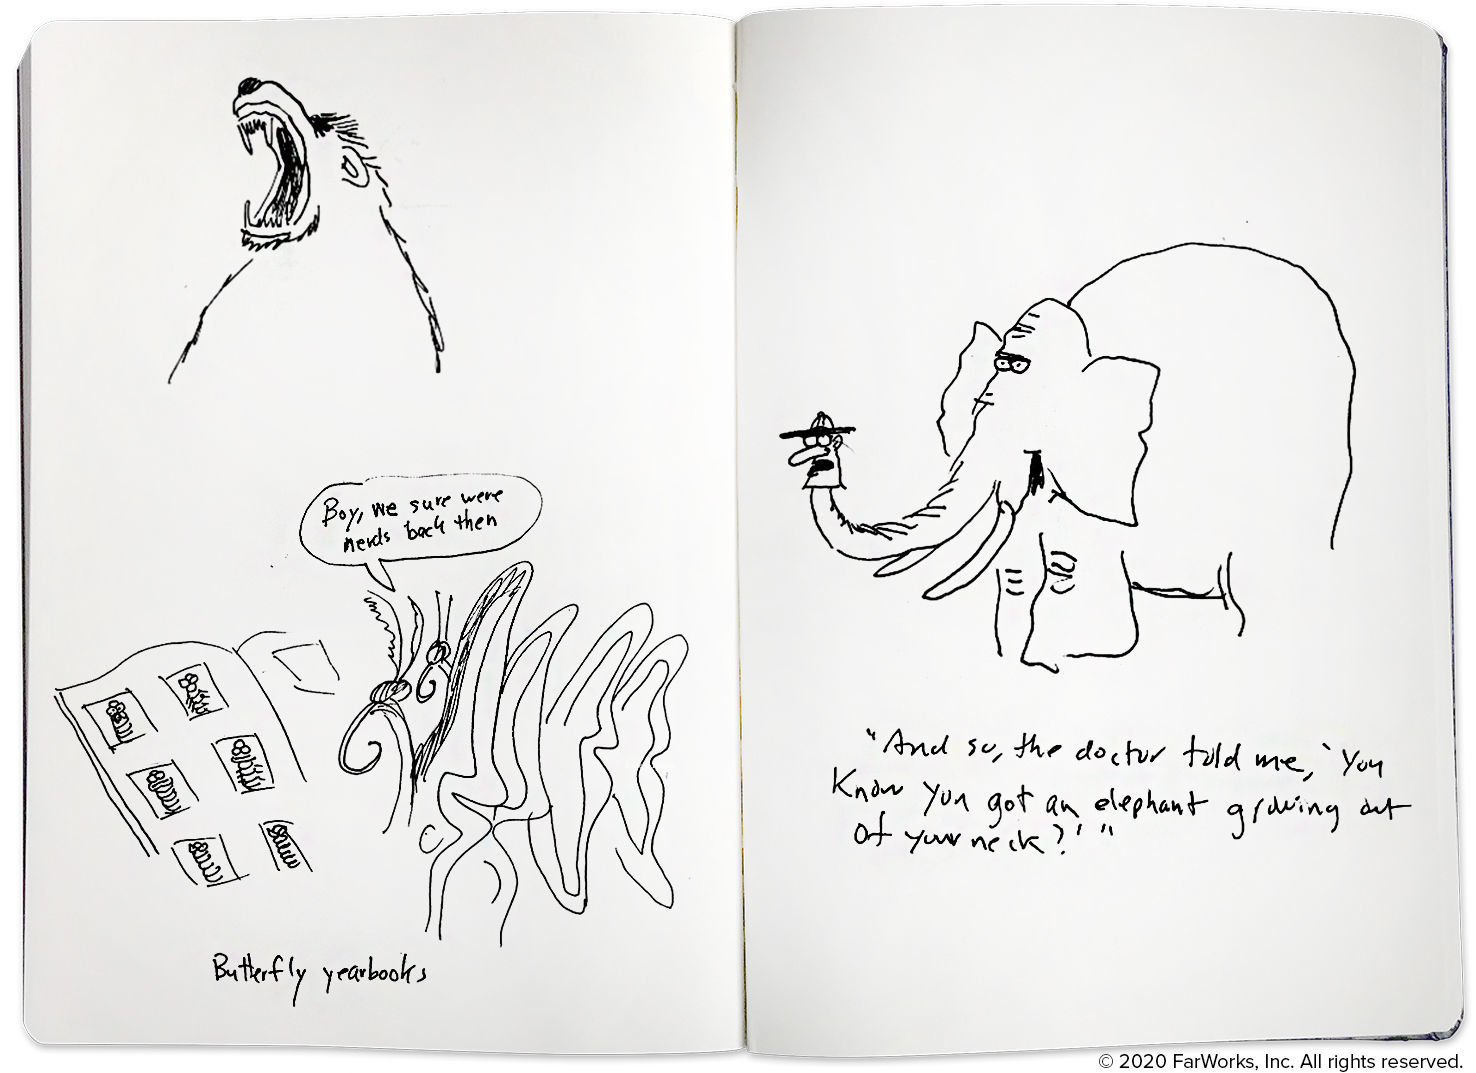 Boy, we sure were
nerds back then
Butterfly yearbooks
"And so, the doctor told me, 'You
know you got an elephant growing out
of your neck?'"
© 2020 FarWorks, Inc. All rights reserved.